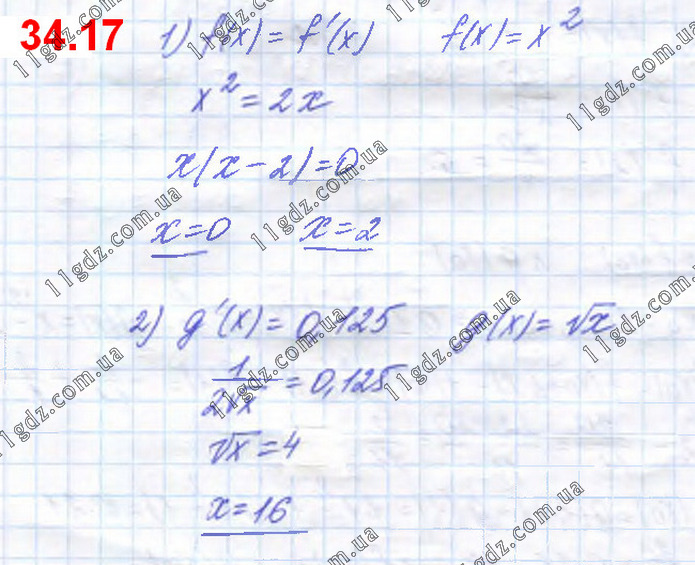 34.17 1) f(x) = f'(x) f(x) = x²
x² = 2x
x(x - 2) = 0
x = 0 x = 2
2) g'(x) = 0,125 g(x) = √x
1/(2√x) = 0,125
√x = 4
x = 16
11gdz.com.ua
11gdz.com.ua
11gdz.com.ua
11gdz.com.ua
11gdz.com.ua
11gdz.com.ua
11gdz.com.ua
11gdz.com.ua
11gdz.com.ua
11gdz.com.ua
11gdz.com.ua